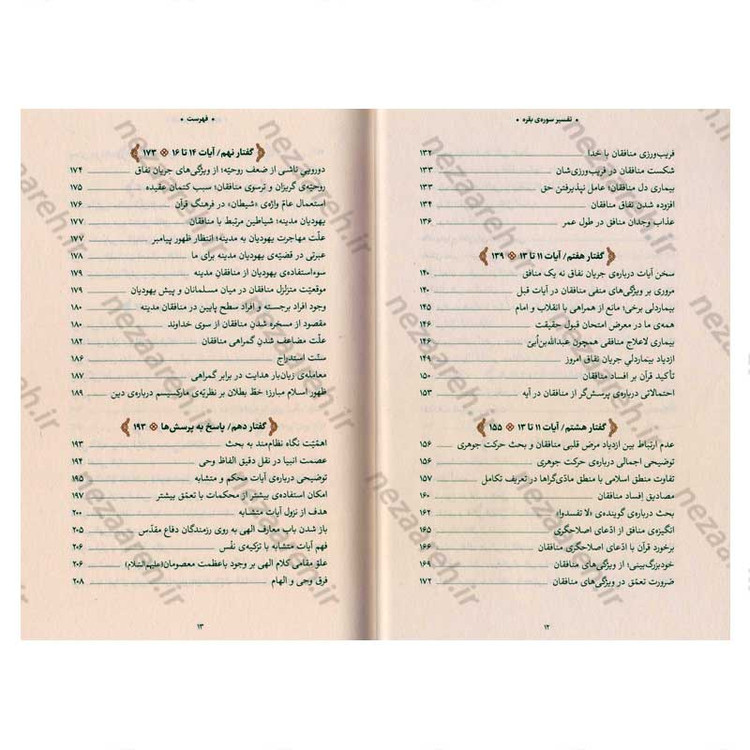 • تفسیر سوره‌ی بقره •
فریب‌ورزی منافقان با خدا ۱۳۲
شکست منافقان در فریب‌ورزی‌شان ۱۳۳
بیماری دل منافقان؛ عامل نپذیرفتن حق ۱۳۳
افزوده شدن نفاق منافقان ۱۳۴
عذاب وجدان منافق در طول عمر ۱۳۶
گفتار هفتم/ آیات ۱۱ تا ۱۳ ۱۳۹
سخن آیات درباره‌ی جریان نفاق نه یک منافق ۱۴۰
مروری بر ویژگی‌های منفی منافقان در آیات قبل ۱۴۰
بیماردلی برخی؛ مانع از همراهی با انقلاب و امام ۱۴۵
همه‌ی ما در معرض امتحان قبول حقیقت ۱۴۶
بیماری لاعلاج منافقی همچون عبدالله‌بن‌اُبیّ ۱۴۶
ازدیاد بیماردلی جریان نفاق امروز ۱۴۹
تأکید قرآن بر افساد منافقان ۱۵۰
احتمالاتی درباره‌ی پرسش‌گر از منافقان در آیه ۱۵۳
گفتار هشتم/ آیات ۱۱ تا ۱۳ ۱۵۵
عدم ارتباط بین ازدیاد مرض قلبی منافقان و بحث حرکت جوهری ۱۵۶
توضیحی اجمالی درباره‌ی حرکت جوهری ۱۵۶
تفاوت منطق اسلامی با منطق مادّی‌گراها در تعریف تکامل ۱۵۷
مصادیق اِفساد منافقان ۱۶۰
بحث درباره‌ی گوینده‌ی «لا تفسدوا» ۱۶۲
انگیزه‌ی منافق از ادّعای اصلاحگری ۱۶۵
برخورد قرآن با ادّعای اصلاحگری منافقان ۱۶۶
خودبزرگ‌بینی؛ از ویژگی‌های منافقان ۱۶۹
ضرورت تعمّق در ویژگی‌های منافقان ۱۷۲
۱۲
• فهرست •
گفتار نهم/ آیات ۱۴ تا ۱۶ ۱۷۳
دورویی ناشی از ضعف روحیّه؛ از ویژگی‌های جریان نفاق ۱۷۴
روحیّه‌ی گریزان و ترسوی منافقان؛ سبب کتمان عقیده ۱۷۵
استعمال عامّ واژه‌ی «شیطان» در فرهنگ قرآن ۱۷۶
یهودیان مدینه؛ شیاطین مرتبط با منافقان ۱۷۷
علّت مهاجرت یهودیان به مدینه؛ انتظار ظهور پیامبر ۱۷۷
عبرتی در قضیّه‌ی یهودیان مدینه برای ما ۱۷۸
سوءاستفاده‌ی یهودیان از منافقان مدینه ۱۷۸
موقعیّت متزلزل منافقان در میان مسلمانان و پیش یهودیان
وجود افراد برجسته و افراد سطح پایین در منافقان مدینه ۱۸۰
مقصود از مسخره شدنِ منافقان از سوی خداوند ۱۸۰
علّت مضاعف شدنِ گمراهی منافقان ۱۸۲
سنّت استدراج ۱۸۶
معامله‌ی زیان‌بار هدایت در برابر گمراهی ۱۸۷
ظهور اسلام مبارز؛ خطّ بطلان بر نظریّه‌ی مارکسیسم درباره‌ی دین ۱۸۹
گفتار دهم/ پاسخ به پرسش‌ها ۱۹۳
اهمّیّت نگاه نظام‌مند به بحث ۱۹۳
عصمت انبیا در نقل دقیق الفاظ وحی ۱۹۴
توضیحی درباره‌ی آیات محکم و متشابه ۱۹۵
امکان استفاده‌ی بیشتر از محکمات با تعمّق بیشتر ۱۹۷
هدف از نزول آیات متشابه ۲۰۰
باز شدن باب معارف الهی به روی رزمندگان دفاع مقدّس ۲۰۵
فهم آیات متشابه با تزکیه‌ی نفْس ۲۰۶
علوّ مقامی کلام الهی بر وجود باعظمت معصومان(علیهم‌السّلام) ۲۰۶
فرق وحی و الهام ۲۰۸
۱۳
nezaareh.ir